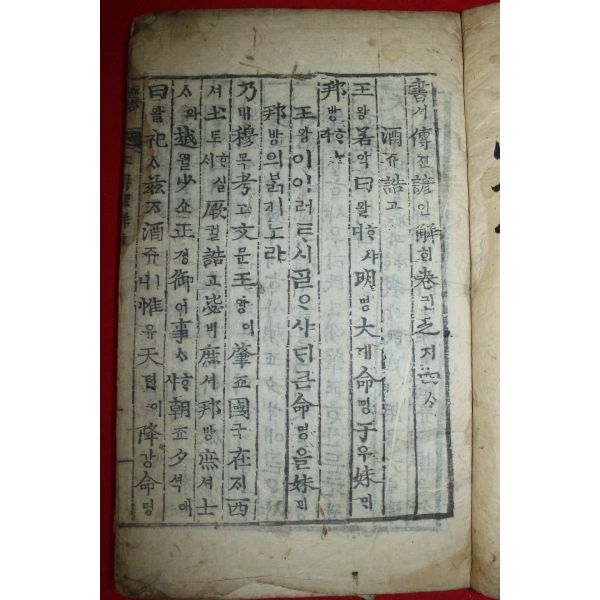 書셔傳젼諺언解ᄒᆡ卷권之지四ᄉᆞ
酒쥬誥고
王왕若약曰왈ᄒᆞ샤ᄃᆡ明명大대命명于우妹ᄆᆡ
邦방ᄒᆞ노라
王왕이이러ᄐᆞ시ᄀᆞᆯᄋᆞ샤ᄃᆡ큰命명을妹ᄆᆡ
邦방의붉기노라
乃내穆목考고文문王왕이肇죠國국在ᄌᆡ西
셔土토ᄒᆞ실ᄉᆡ厥궐誥고毖비庶셔邦방庶셔士
ᄉᆞ와越월少쇼正졍御어事ᄉᆞᄒᆞ샤朝죠夕셕애
曰왈祀ᄉᆞ玆ᄌᆞ酒쥬ㅣ니惟유天텬이降강命명